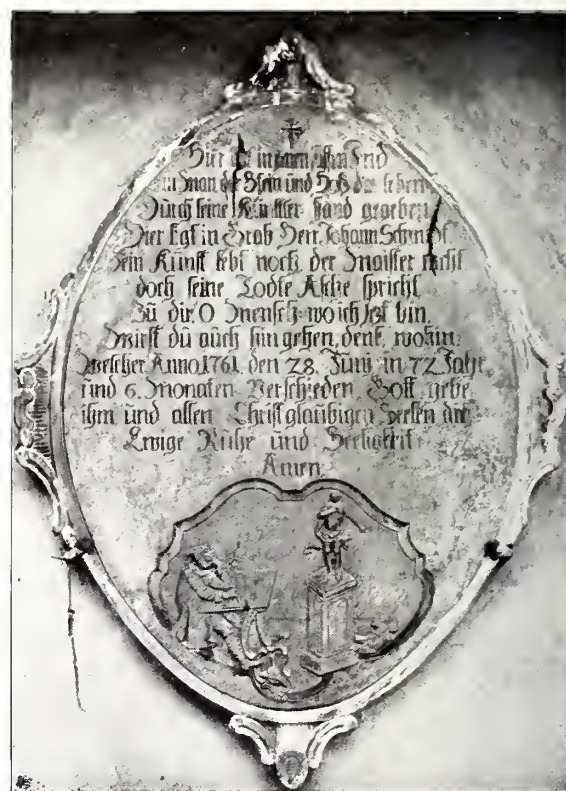 Hier ligt in einen stillen Frid
ein Man der Stein und Holz das leben
Durch seine Künstler hand gegeben
Hier ligt in Grab Herr Johann Schmidt
Sein Kunst lebt noch, der Maister nicht
doch seine Todte Asche spricht
Zu dir. O Mensch wo ich jezt bin
Wirst du auch hin gehen, denk, wohin.
Welcher Anno 1761 den 28. Junij in 72 Jahr
und 6. Monaten Verschieden Gott gebe
ihm und allen Christglaubigen Seelen die
Ewige Ruhe und Seeligkeit
Amen